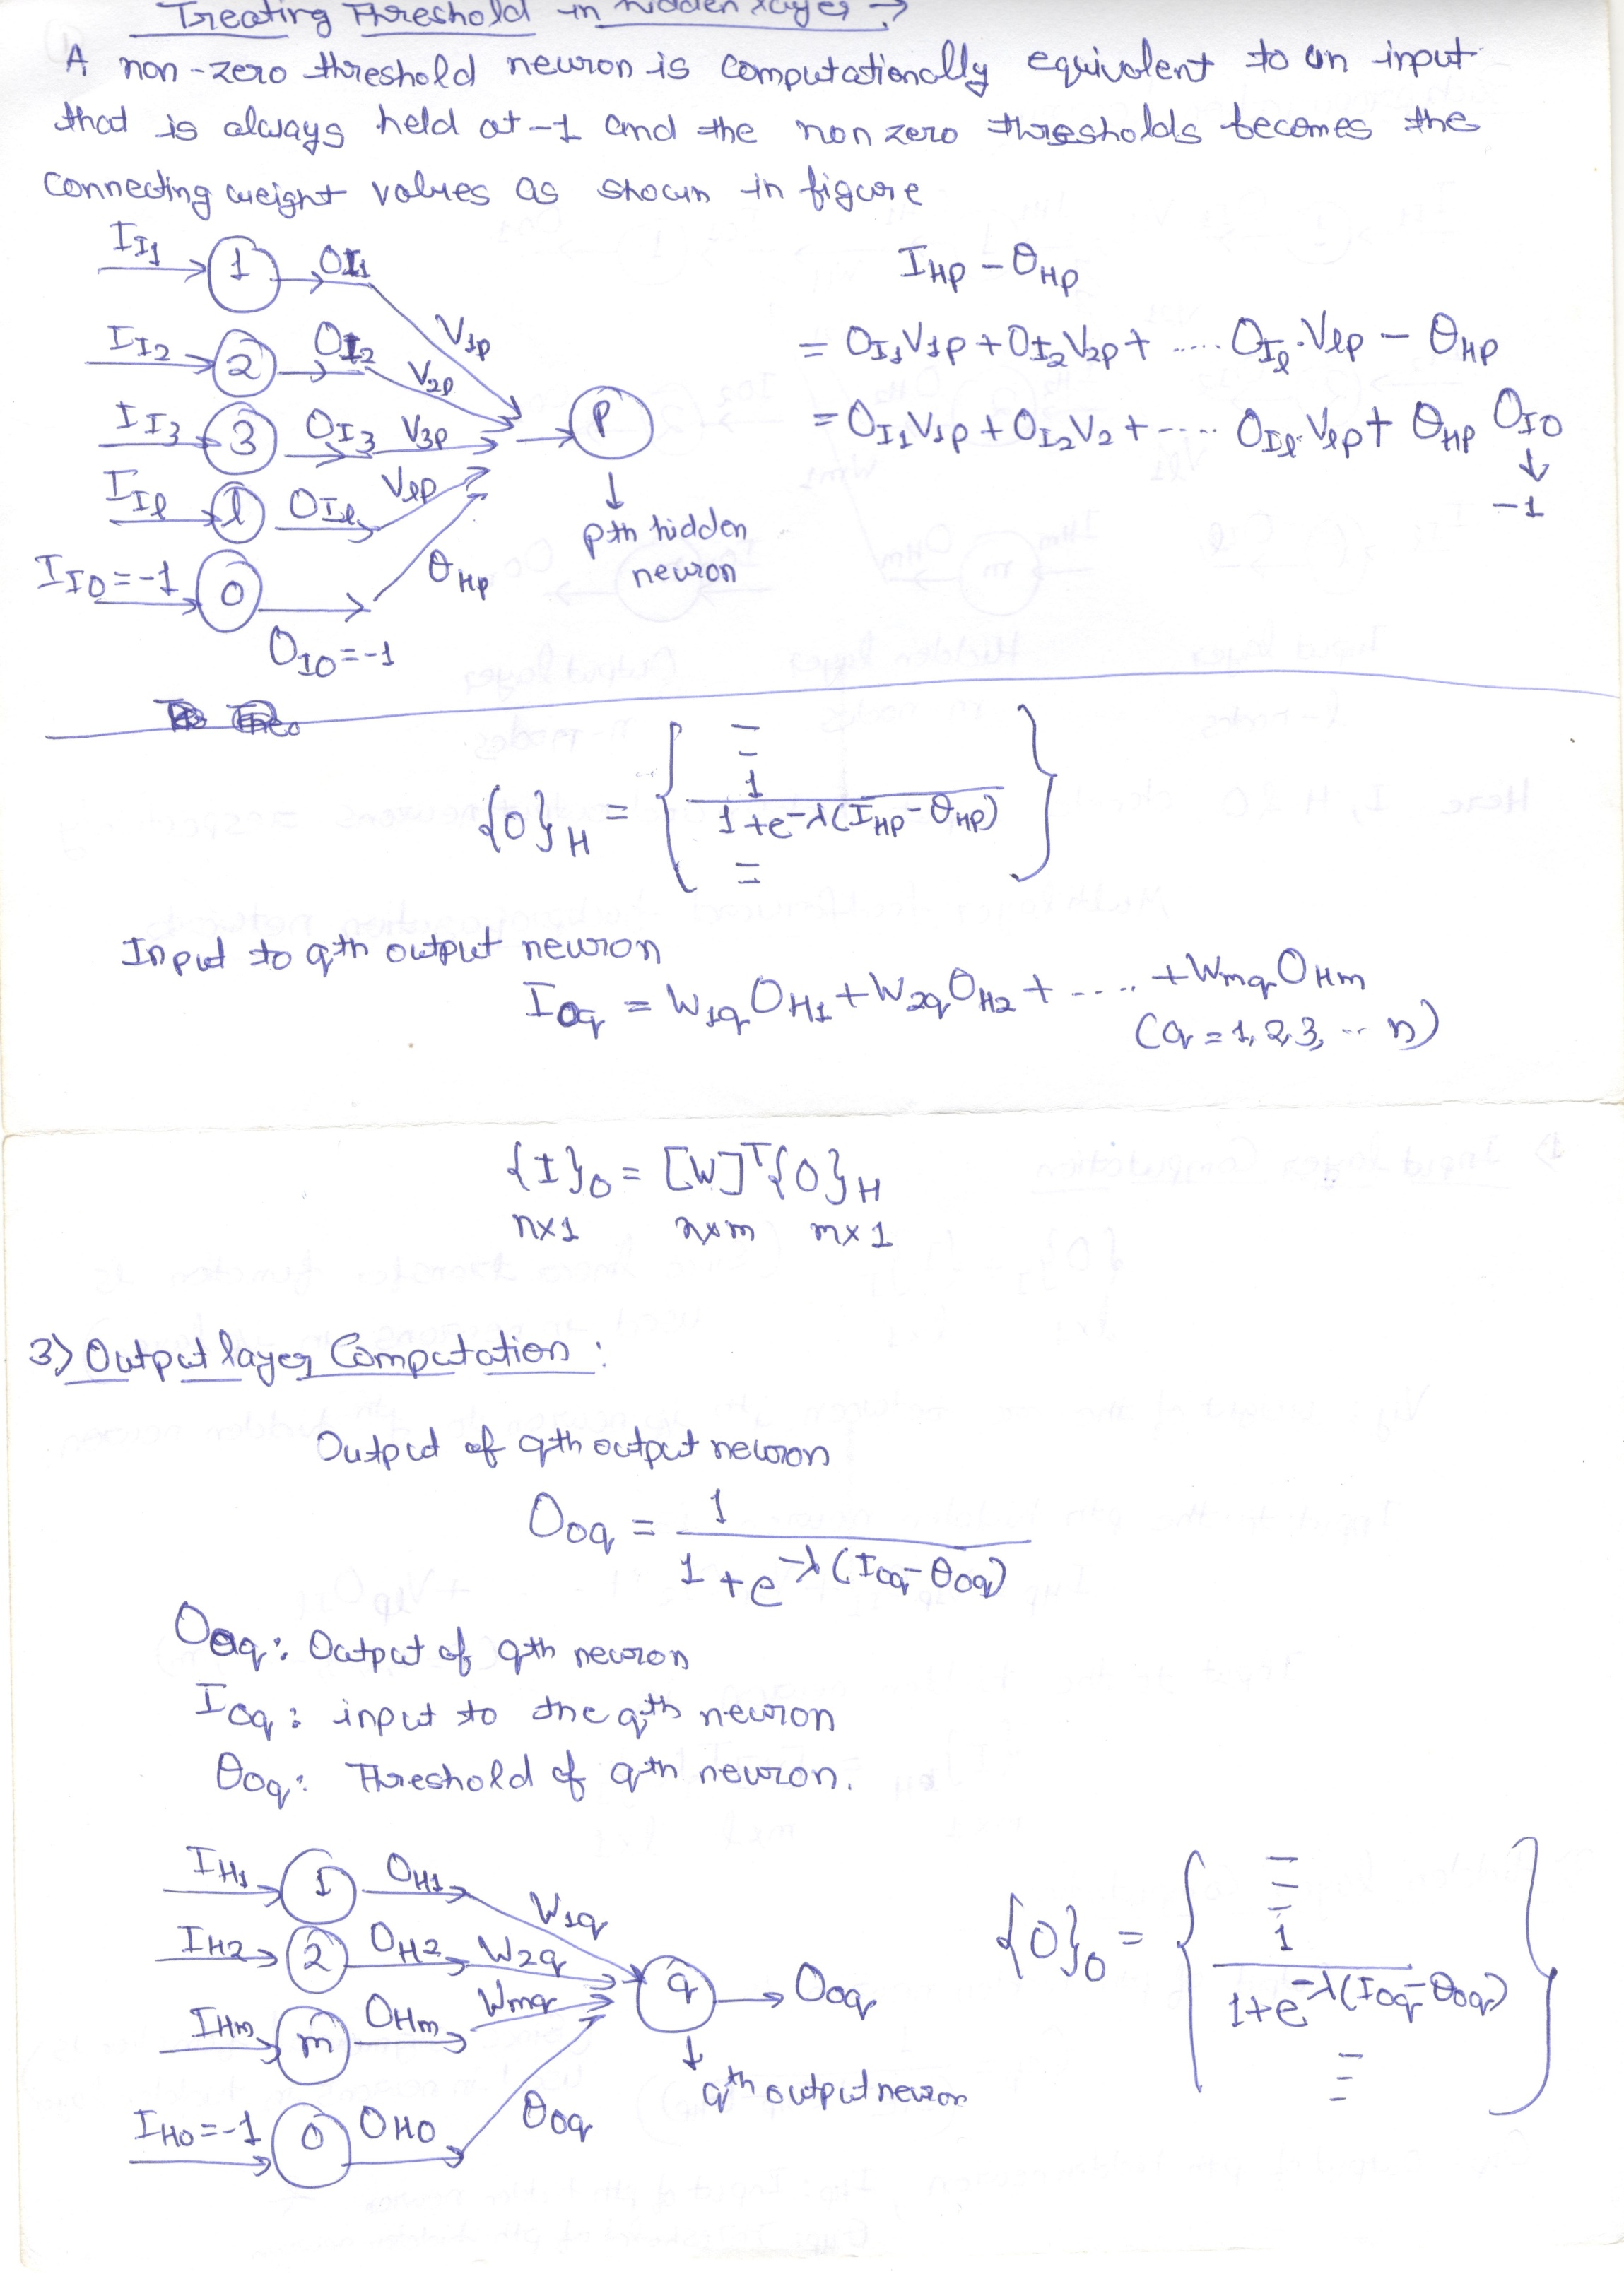 Treating Threshold in hidden layer →
A non-zero threshold neuron is computationally equivalent to an input
that is always held at -1 and the non zero thresholds becomes the
connecting weight values as shown in figure
I_I1 1 O_I1 V_1p
I_I2 2 O_I2 V_2p
I_I3 3 O_I3 V_3p P
I_Iℓ ℓ O_Iℓ V_ℓp
↓
pth hidden
neuron
I_I0 = -1 0 θ_HP
O_I0 = -1
I_HP - θ_HP
= O_I1 V_1p + O_I2 V_2p + ..... O_Iℓ . V_ℓp - θ_HP
= O_I1 V_1p + O_I2 V_2 + ---- O_Iℓ . V_ℓp + θ_HP O_I0
↓
-1
{O}_H = { 1 / 1 + e^-λ(I_HP - θ_HP) }
Input to qth output neuron
I_Oq = W_1q O_H1 + W_2q O_H2 + ..... + W_mq O_Hm
(q = 1, 2, 3, ... n)
{I}_O = [W]^T {O}_H
n×1 n×m m×1
3) Output layer Computation :
Output of qth output neuron
O_Oq = 1 / 1 + e^-λ(I_Oq - θ_Oq)
O_Oq : Output of qth neuron
I_Oq : input to the qth neuron
θ_Oq : Threshold of qth neuron.
I_H1 1 O_H1 W_1q
I_H2 2 O_H2 W_2q
q → O_Oq
I_Hm m O_Hm W_mq
↓
qth output neuron
I_H0 = -1 0 O_H0 θ_Oq
{O}_O = { 1 / 1 + e^-λ(I_Oq - θ_Oq) }